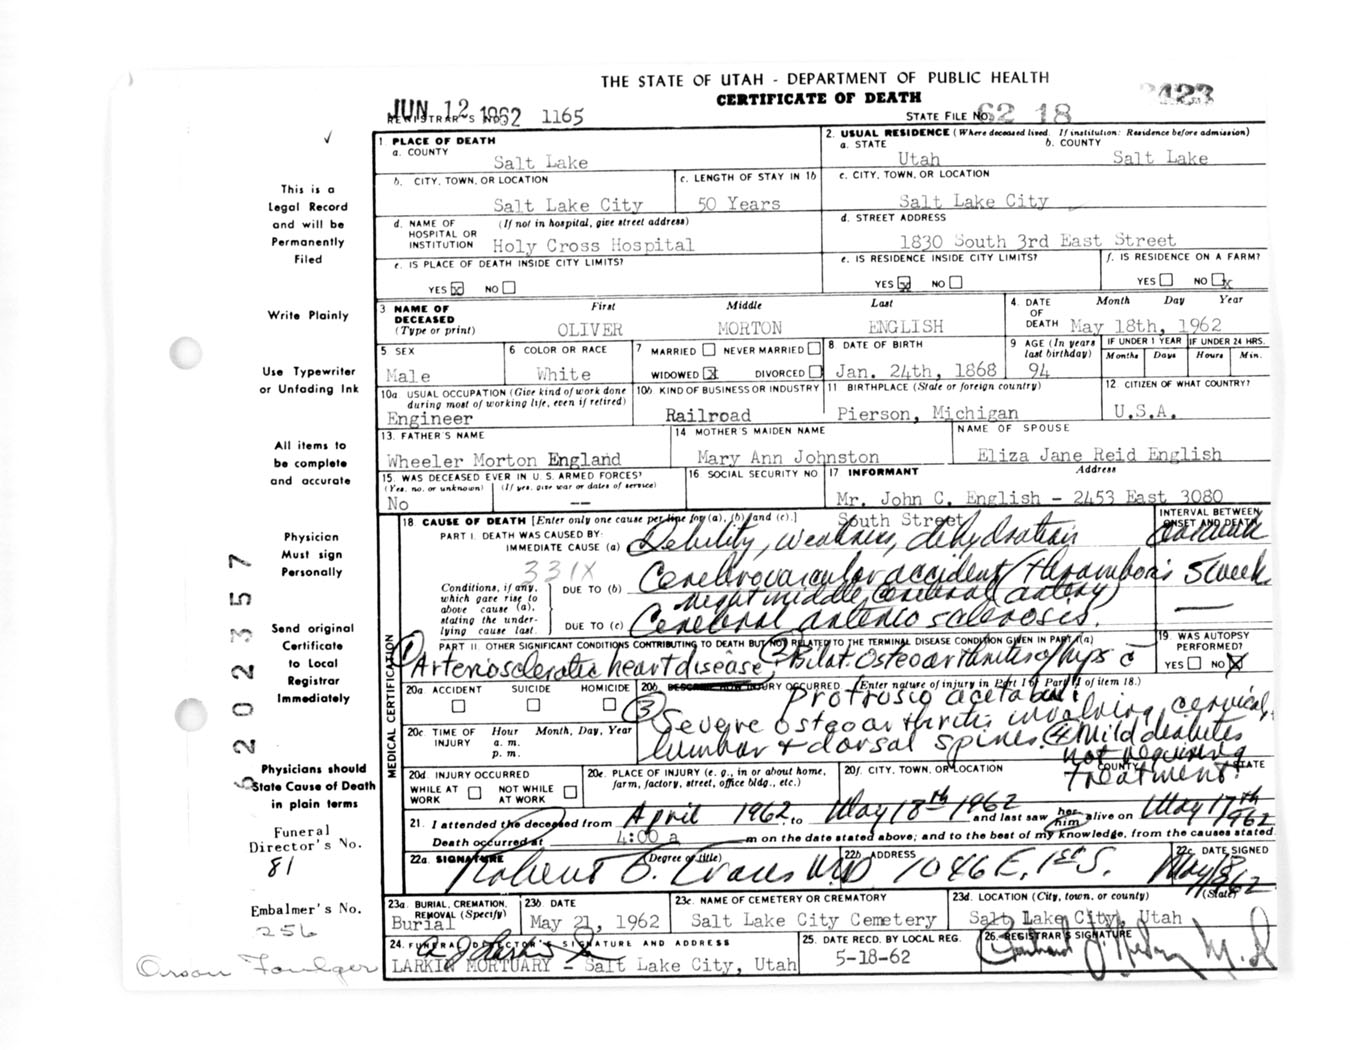 THE STATE OF UTAH - DEPARTMENT OF PUBLIC HEALTH
CERTIFICATE OF DEATH
JUN 12 1962 1165
REGISTRAR'S NO.
STATE FILE NO. 62 18
2423
1. PLACE OF DEATH
a. COUNTY
Salt Lake
2. USUAL RESIDENCE (Where deceased lived. If institution: Residence before admission)
a. STATE b. COUNTY
Utah Salt Lake
b. CITY, TOWN, OR LOCATION
Salt Lake City
c. LENGTH OF STAY IN 1b
50 Years
c. CITY, TOWN, OR LOCATION
Salt Lake City
d. NAME OF HOSPITAL OR INSTITUTION (If not in hospital, give street address)
Holy Cross Hospital
d. STREET ADDRESS
1830 South 3rd East Street
e. IS PLACE OF DEATH INSIDE CITY LIMITS?
YES ☒ NO ☐
e. IS RESIDENCE INSIDE CITY LIMITS?
YES ☒ NO ☐
f. IS RESIDENCE ON A FARM?
YES ☐ NO ☒
3 NAME OF DECEASED (Type or print)
First Middle Last
OLIVER MORTON ENGLISH
4. DATE OF DEATH Month Day Year
May 18th, 1962
5 SEX
Male
6 COLOR OR RACE
White
7 MARRIED ☐ NEVER MARRIED ☐
WIDOWED ☒ DIVORCED ☐
8 DATE OF BIRTH
Jan. 24th, 1868
9 AGE (In years last birthday)
94
IF UNDER 1 YEAR IF UNDER 24 HRS.
Months Days Hours Min.
10a USUAL OCCUPATION (Give kind of work done during most of working life, even if retired)
Engineer
10b KIND OF BUSINESS OR INDUSTRY
Railroad
11 BIRTHPLACE (State or foreign country)
Pierson, Michigan
12 CITIZEN OF WHAT COUNTRY?
U.S.A.
13. FATHER'S NAME
Wheeler Morton England
14 MOTHER'S MAIDEN NAME
Mary Ann Johnston
NAME OF SPOUSE
Eliza Jane Reid English
15. WAS DECEASED EVER IN U.S. ARMED FORCES?
(Yes, no, or unknown) (If yes, give war or dates of service)
No --
16 SOCIAL SECURITY NO
17 INFORMANT Address
Mr. John C. English - 2453 East 3080
South Street
18 CAUSE OF DEATH [Enter only one cause per line for (a), (b) and (c).]
INTERVAL BETWEEN ONSET AND DEATH
PART I. DEATH WAS CAUSED BY:
IMMEDIATE CAUSE (a) Debility, weakness, dehydration
331X
Conditions, if any, which gave rise to above cause (a), stating the underlying cause last.
DUE TO (b) Cerebrovascular accident (thrombosis 5 week
right middle cerebral artery)
DUE TO (c) Cerebral arterio sclerosis.
PART II. OTHER SIGNIFICANT CONDITIONS CONTRIBUTING TO DEATH BUT NOT RELATED TO THE TERMINAL DISEASE CONDITION GIVEN IN PART I(a)
① Arteriosclerotic heart disease, ② Bilat. Osteoarthritis of hips c̄
protrusio acetabuli
19. WAS AUTOPSY PERFORMED?
YES ☐ NO ☒
20a ACCIDENT SUICIDE HOMICIDE
☐ ☐ ☐
20b. DESCRIBE HOW INJURY OCCURRED (Enter nature of injury in Part I or Part II of item 18.)
③ Severe osteoarthritis involving cervical,
lumbar & dorsal spines. ④ Mild diabetes
not requiring
treatment.
20c TIME OF INJURY Hour Month, Day, Year
a. m.
p. m.
20d INJURY OCCURRED
WHILE AT WORK ☐ NOT WHILE AT WORK ☐
20e. PLACE OF INJURY (e. g., in or about home, farm, factory, street, office bldg., etc.)
20f. CITY, TOWN, OR LOCATION COUNTY STATE
21. I attended the deceased from April 1962 to May 18th 1962 and last saw her him alive on May 17th 1962
Death occurred at 4:00 a m on the date stated above; and to the best of my knowledge, from the causes stated.
22a. SIGNATURE (Degree or title)
Robert O. Evans MD
22b ADDRESS
1046 E. 1st S.
22c DATE SIGNED
May 18 1962
23a. BURIAL, CREMATION, REMOVAL (Specify)
Burial
23b. DATE
May 21, 1962
23c. NAME OF CEMETERY OR CREMATORY
Salt Lake City Cemetery
23d. LOCATION (City, town, or county) (State)
Salt Lake City, Utah
24. FUNERAL DIRECTOR'S SIGNATURE AND ADDRESS
LARKIN MORTUARY - Salt Lake City, Utah
25. DATE RECD. BY LOCAL REG.
5-18-62
26. REGISTRAR'S SIGNATURE
MEDICAL CERTIFICATION
This is a
Legal Record
and will be
Permanently
Filed
Write Plainly
Use Typewriter
or Unfading Ink
All items to
be complete
and accurate
Physician
Must sign
Personally
Send original
Certificate
to Local
Registrar
Immediately
Physicians should
State Cause of Death
in plain terms
Funeral
Director's No.
81
Embalmer's No.
256
Orson Foulger